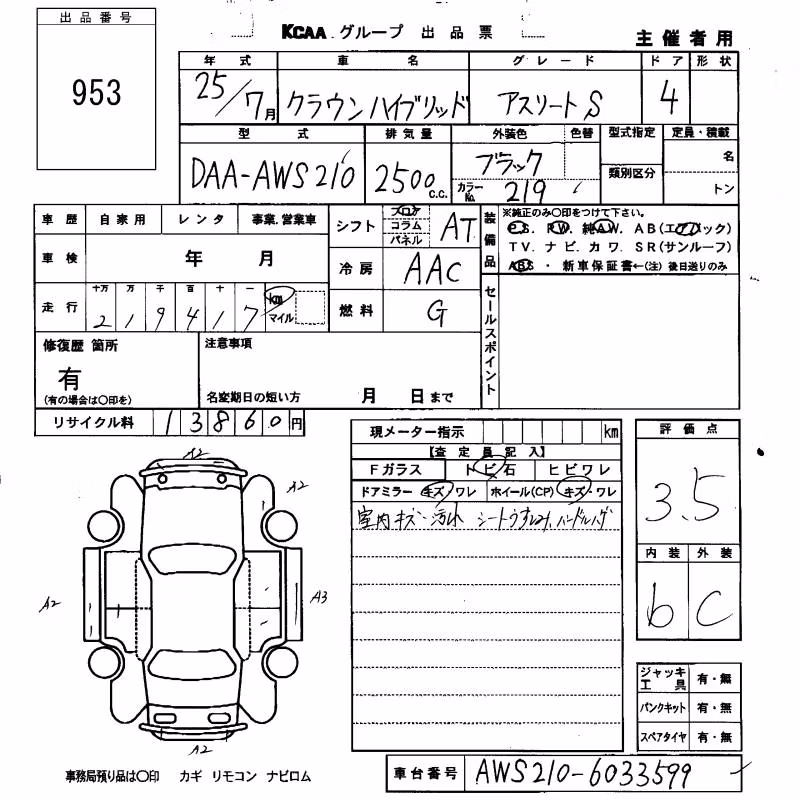 出品番号
953
KCAA グループ 出品票
主催者用
年式 車名 グレード ドア 形状
25/7月 クラウンハイブリッド アスリートS 4
型式 排気量 外装色 色替 型式指定 定員・積載
DAA-AWS210 2500c.c. ブラック 類別区分 名
カラーNo. 219 トン
車歴 自家用 レンタ 事業.営業車
車検 年 月
走行 十万 万 千 百 十 一
2 1 9 4 1 7 km マイル
シフト フロア コラム パネル AT
冷房 AAC
燃料 G
装備品 ※純正のみ○印をつけて下さい。
P.S. P.W. 純A.W. AB(エアバック)
TV. ナビ. カワ. SR(サンルーフ)
ABS ・ 新車保証書←(注) 後日送りのみ
セールスポイント
修復歴 箇所
有
(有の場合は○印を)
注意事項
名変期日の短い方 月 日まで
リサイクル料 13860円
現メーター指示 km
【査定員記入】
Fガラス トビ石 ヒビワレ
ドアミラー キズ・ワレ ホイール(CP) キズ・ワレ
室内キズ・汚れ シートうすよごみ、ハンドルハゲ
評価点
3.5
内装 外装
b C
A2
A2
A2 A3
A2
ジャッキ工具 有・無
パンクキット 有・無
スペアタイヤ 有・無
事務局預り品は○印 カギ リモコン ナビロム
車台番号 AWS210-6033599